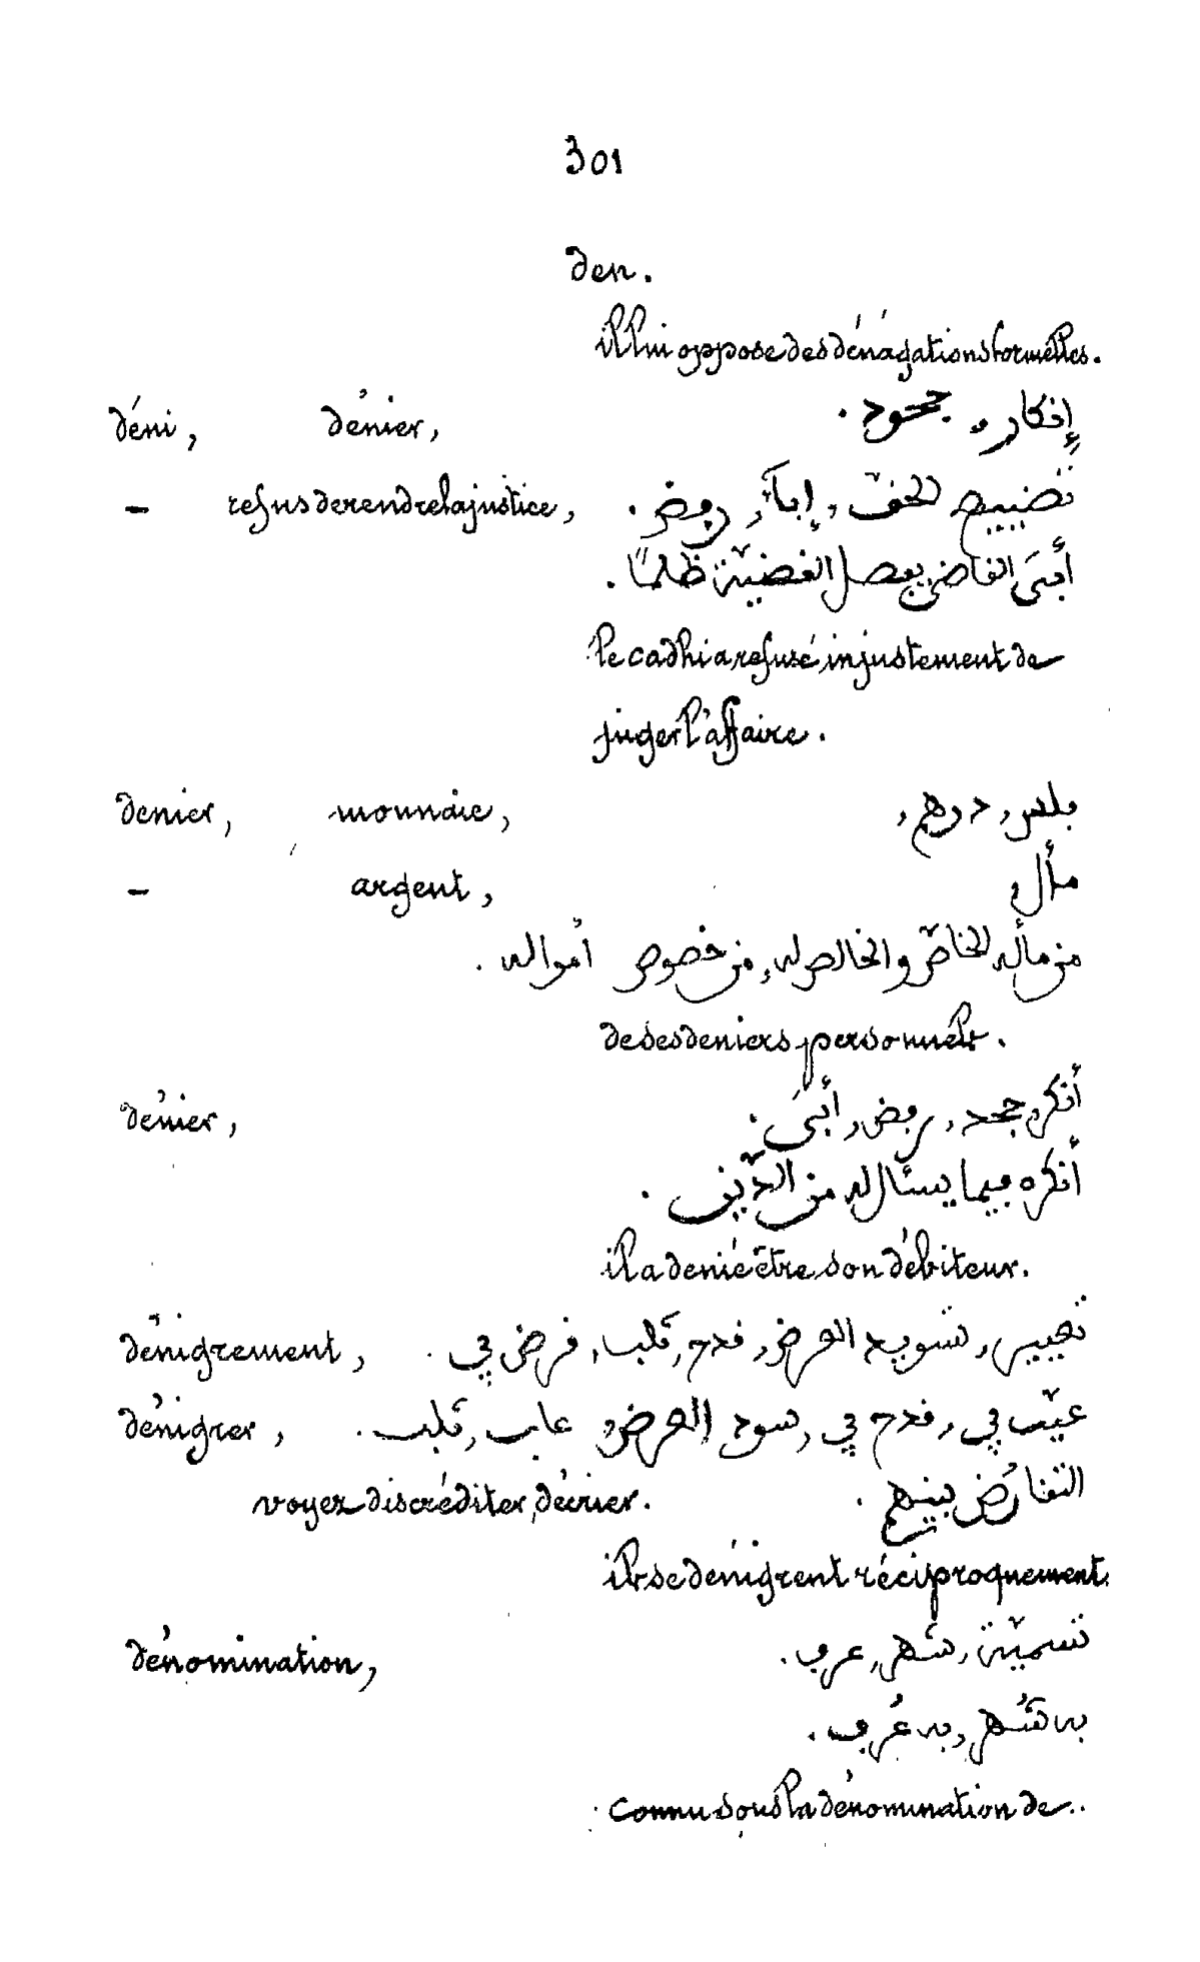 301
den.
il lui oppose des dénégations formelles.
déni, dénier, إنكار, جحود.
— refus de rendre la justice, تضييع الحقّ, إبآء, رفض.
أبَى القاضي بفصل القضيّة ظلمًا.
le cadhi a refusé injustement de
juger l'affaire.
denier, monnaie, فلس, درهم,
— argent, مأل,
من مأله الخاصّ والخالص له, من خصوص أمواله.
de ses deniers personnels.
dénier, أنكر, جحد, رفض, أبَى.
أنكره فيما يسئال له من الدّين.
il a dénié être son débiteur.
dénigrement, تعييب, تسويد العرض, قدح, ثلب, قرض في.
dénigrer, عيّب في, قدح في, سود العرض, عاب, ثلب.
voyez discréditer, décrier. التقارُض بينهم.
ils se dénigrent réciproquement.
dénomination, تسميّة, شهر, عرف.
به شُهر, به عُرف.
connu sous la dénomination de..